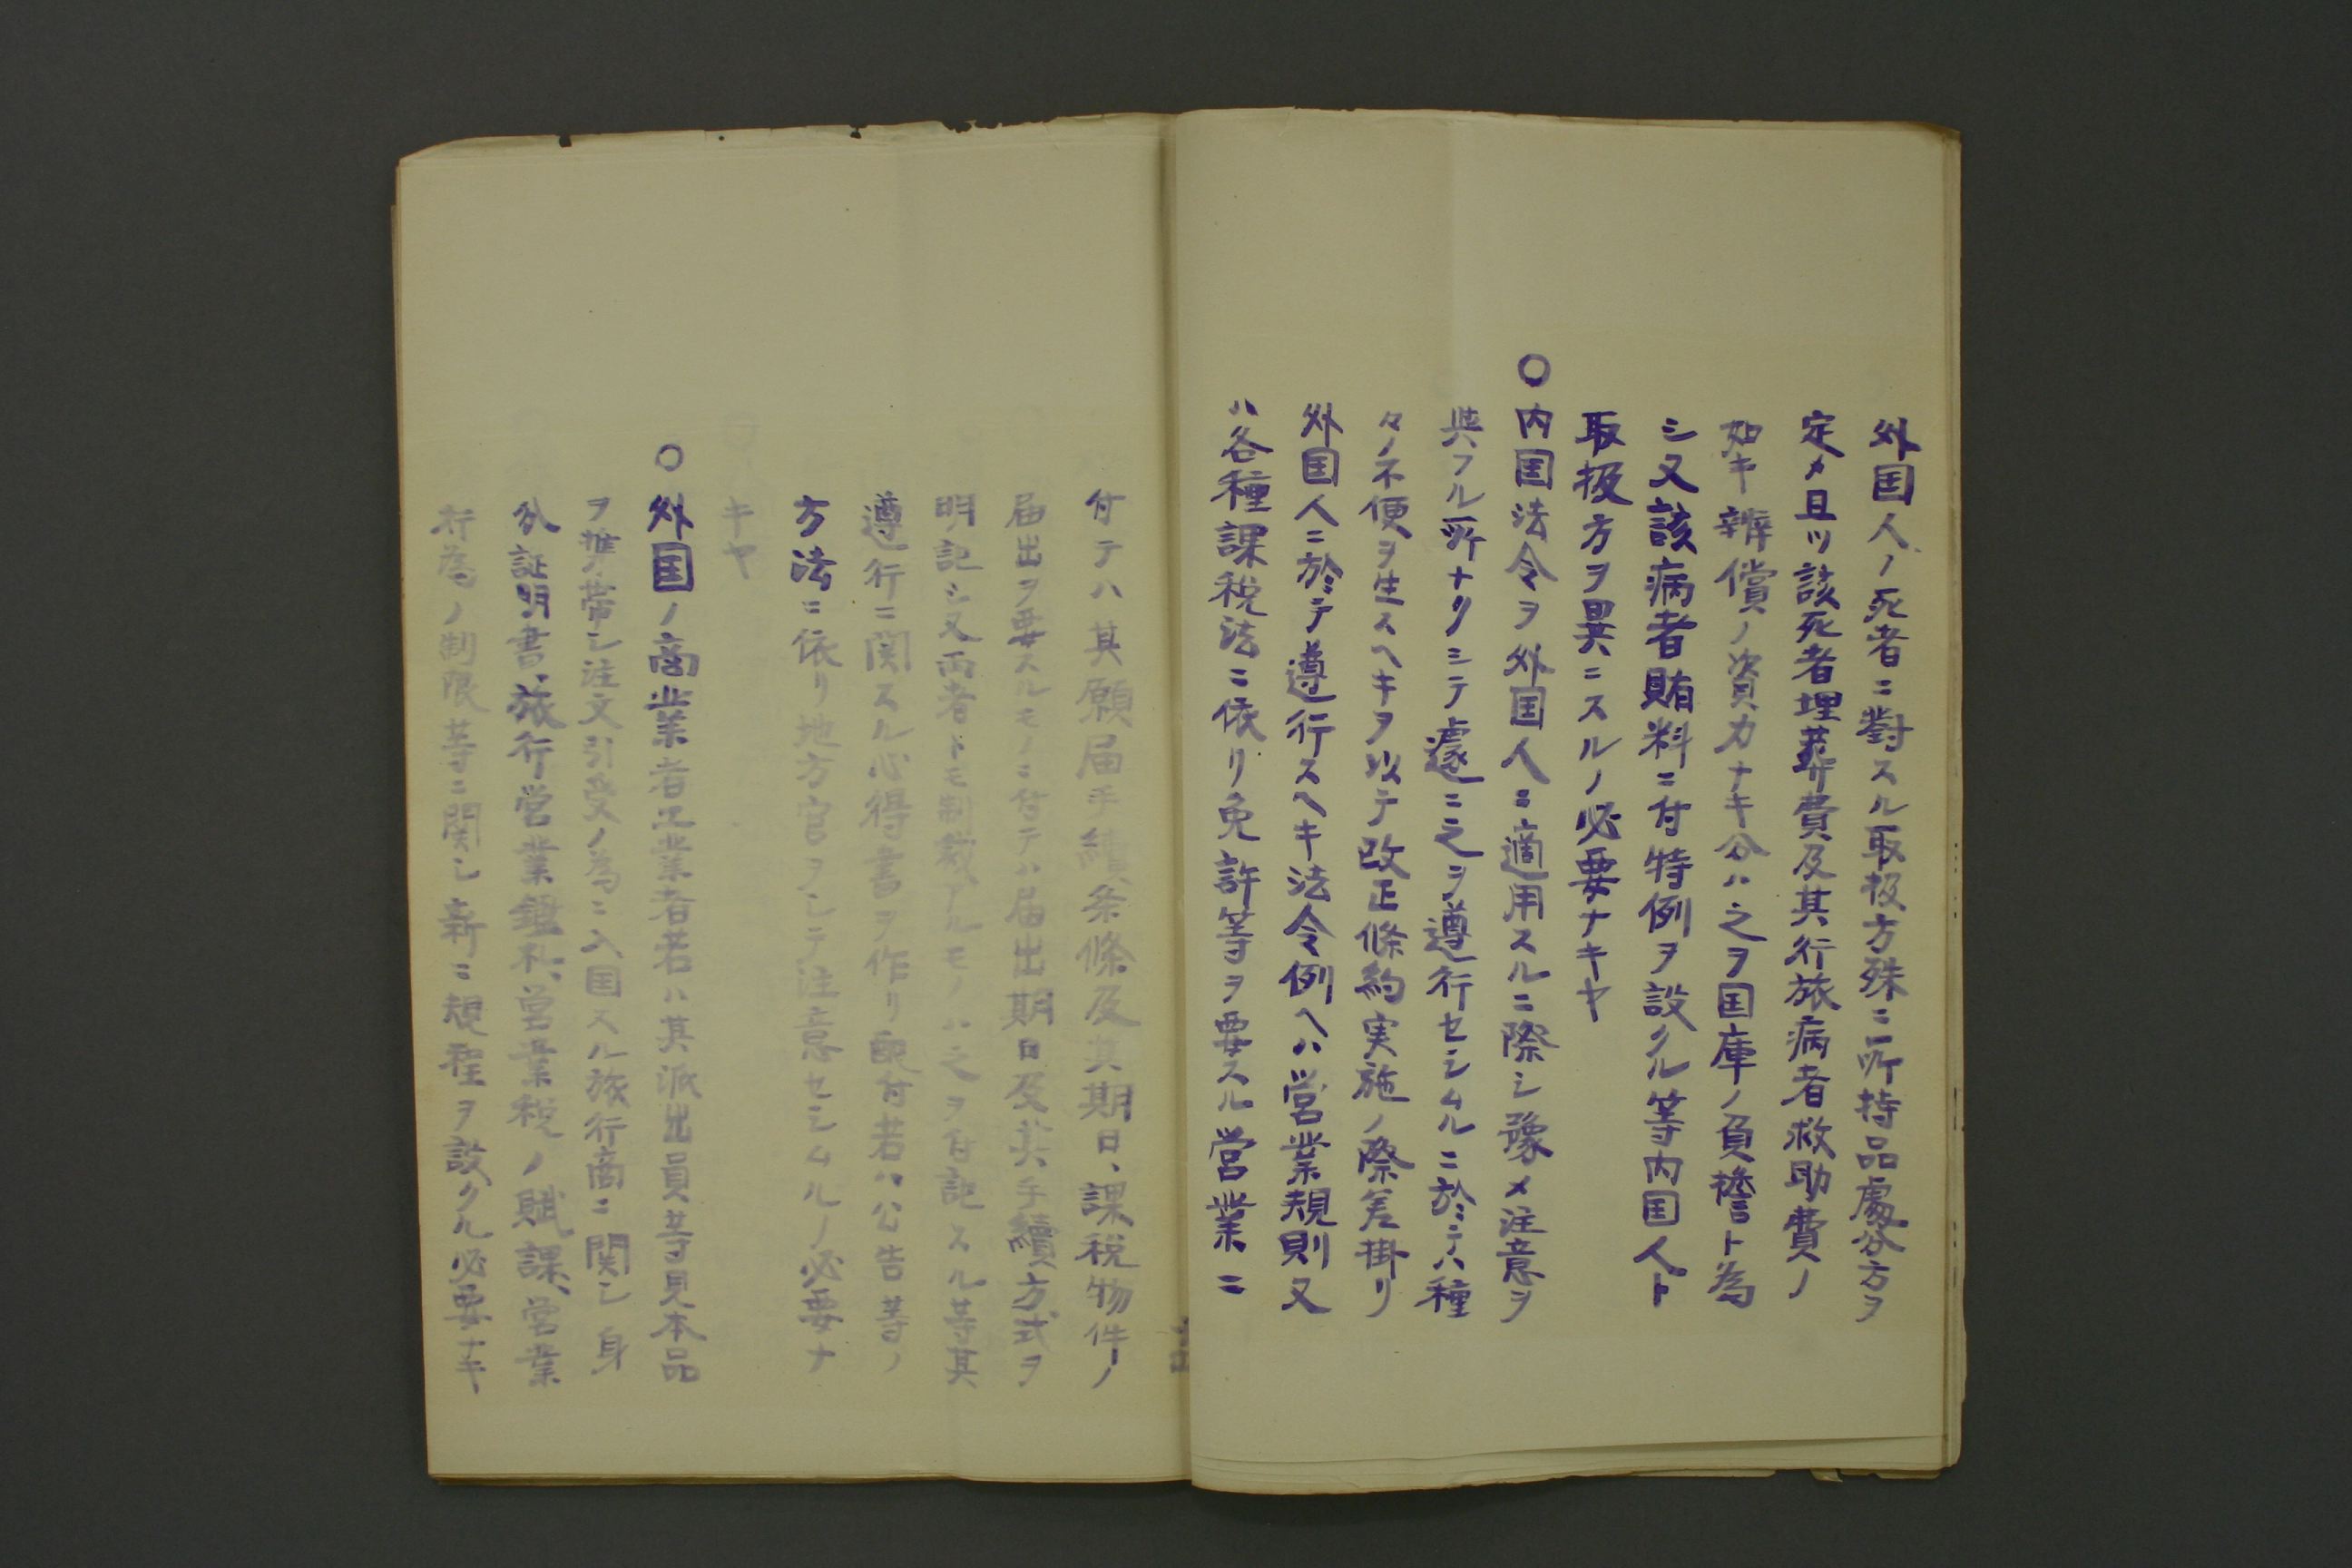 外国人ノ死者ニ對スル取扱方殊ニ所持品處分方ヲ
定メ且ツ該死者埋葬費及其行旅病者救助費ノ
如キ辨償ノ資力ナキ分ハ之ヲ国庫ノ負擔ト為
シ又該病者賄料ニ付特例ヲ設クル等内国人ト
取扱方ヲ異ニスルノ必要ナキヤ
〇内国法令ヲ外国人ニ適用スルニ際シ豫メ注意ヲ
與フル所ナクシテ遽ニ之ヲ遵行セシムルニ於テハ種
々ノ不便ヲ生スヘキヲ以テ改正條約実施ノ際差掛リ
外国人ニ於テ遵行スヘキ法令例ヘハ営業規則又
ハ各種課税法ニ依リ免許等ヲ要スル営業ニ
付テハ其願届手續条條及其期日、課税物件ノ
届出ヲ要スルモノニ付テハ届出期日及其手續方式ヲ
明記シ又両者トモ制裁アルモノハ之ヲ付記スル等其
遵行ニ関スル心得書ヲ作リ配付若ハ公告等ノ
方法ニ依リ地方官ヲシテ注意セシムルノ必要ナ
キヤ
〇外国ノ商業者工業者若ハ其派出員等見本品
ヲ携帯シ注文引受ノ為ニ入国スル旅行商ニ関シ身
分証明書、旅行営業鑑札、営業税ノ賦課、営業
行為ノ制限等ニ関シ新ニ規程ヲ設クル必要ナキ